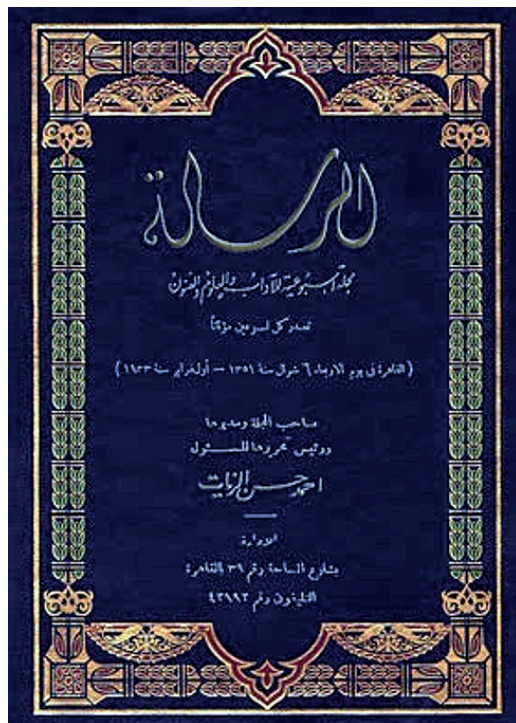 الرسالة
مجلة أسبوعية للآداب والعلوم والفنون
تصدر كل أسبوعين مؤقتاً
(القاهرة في يوم الأربعاء ٦ شوال سنة ١٣٥١ – أول فبراير سنة ١٩٣٣)
صاحب المجلة ومديرها
ورئيس تحريرها المسئول
احمد حسن الزيات
الإدارة
بشارع الساحة رقم ٣٩ بالقاهرة
التليفون رقم ٤٢٩٩٢